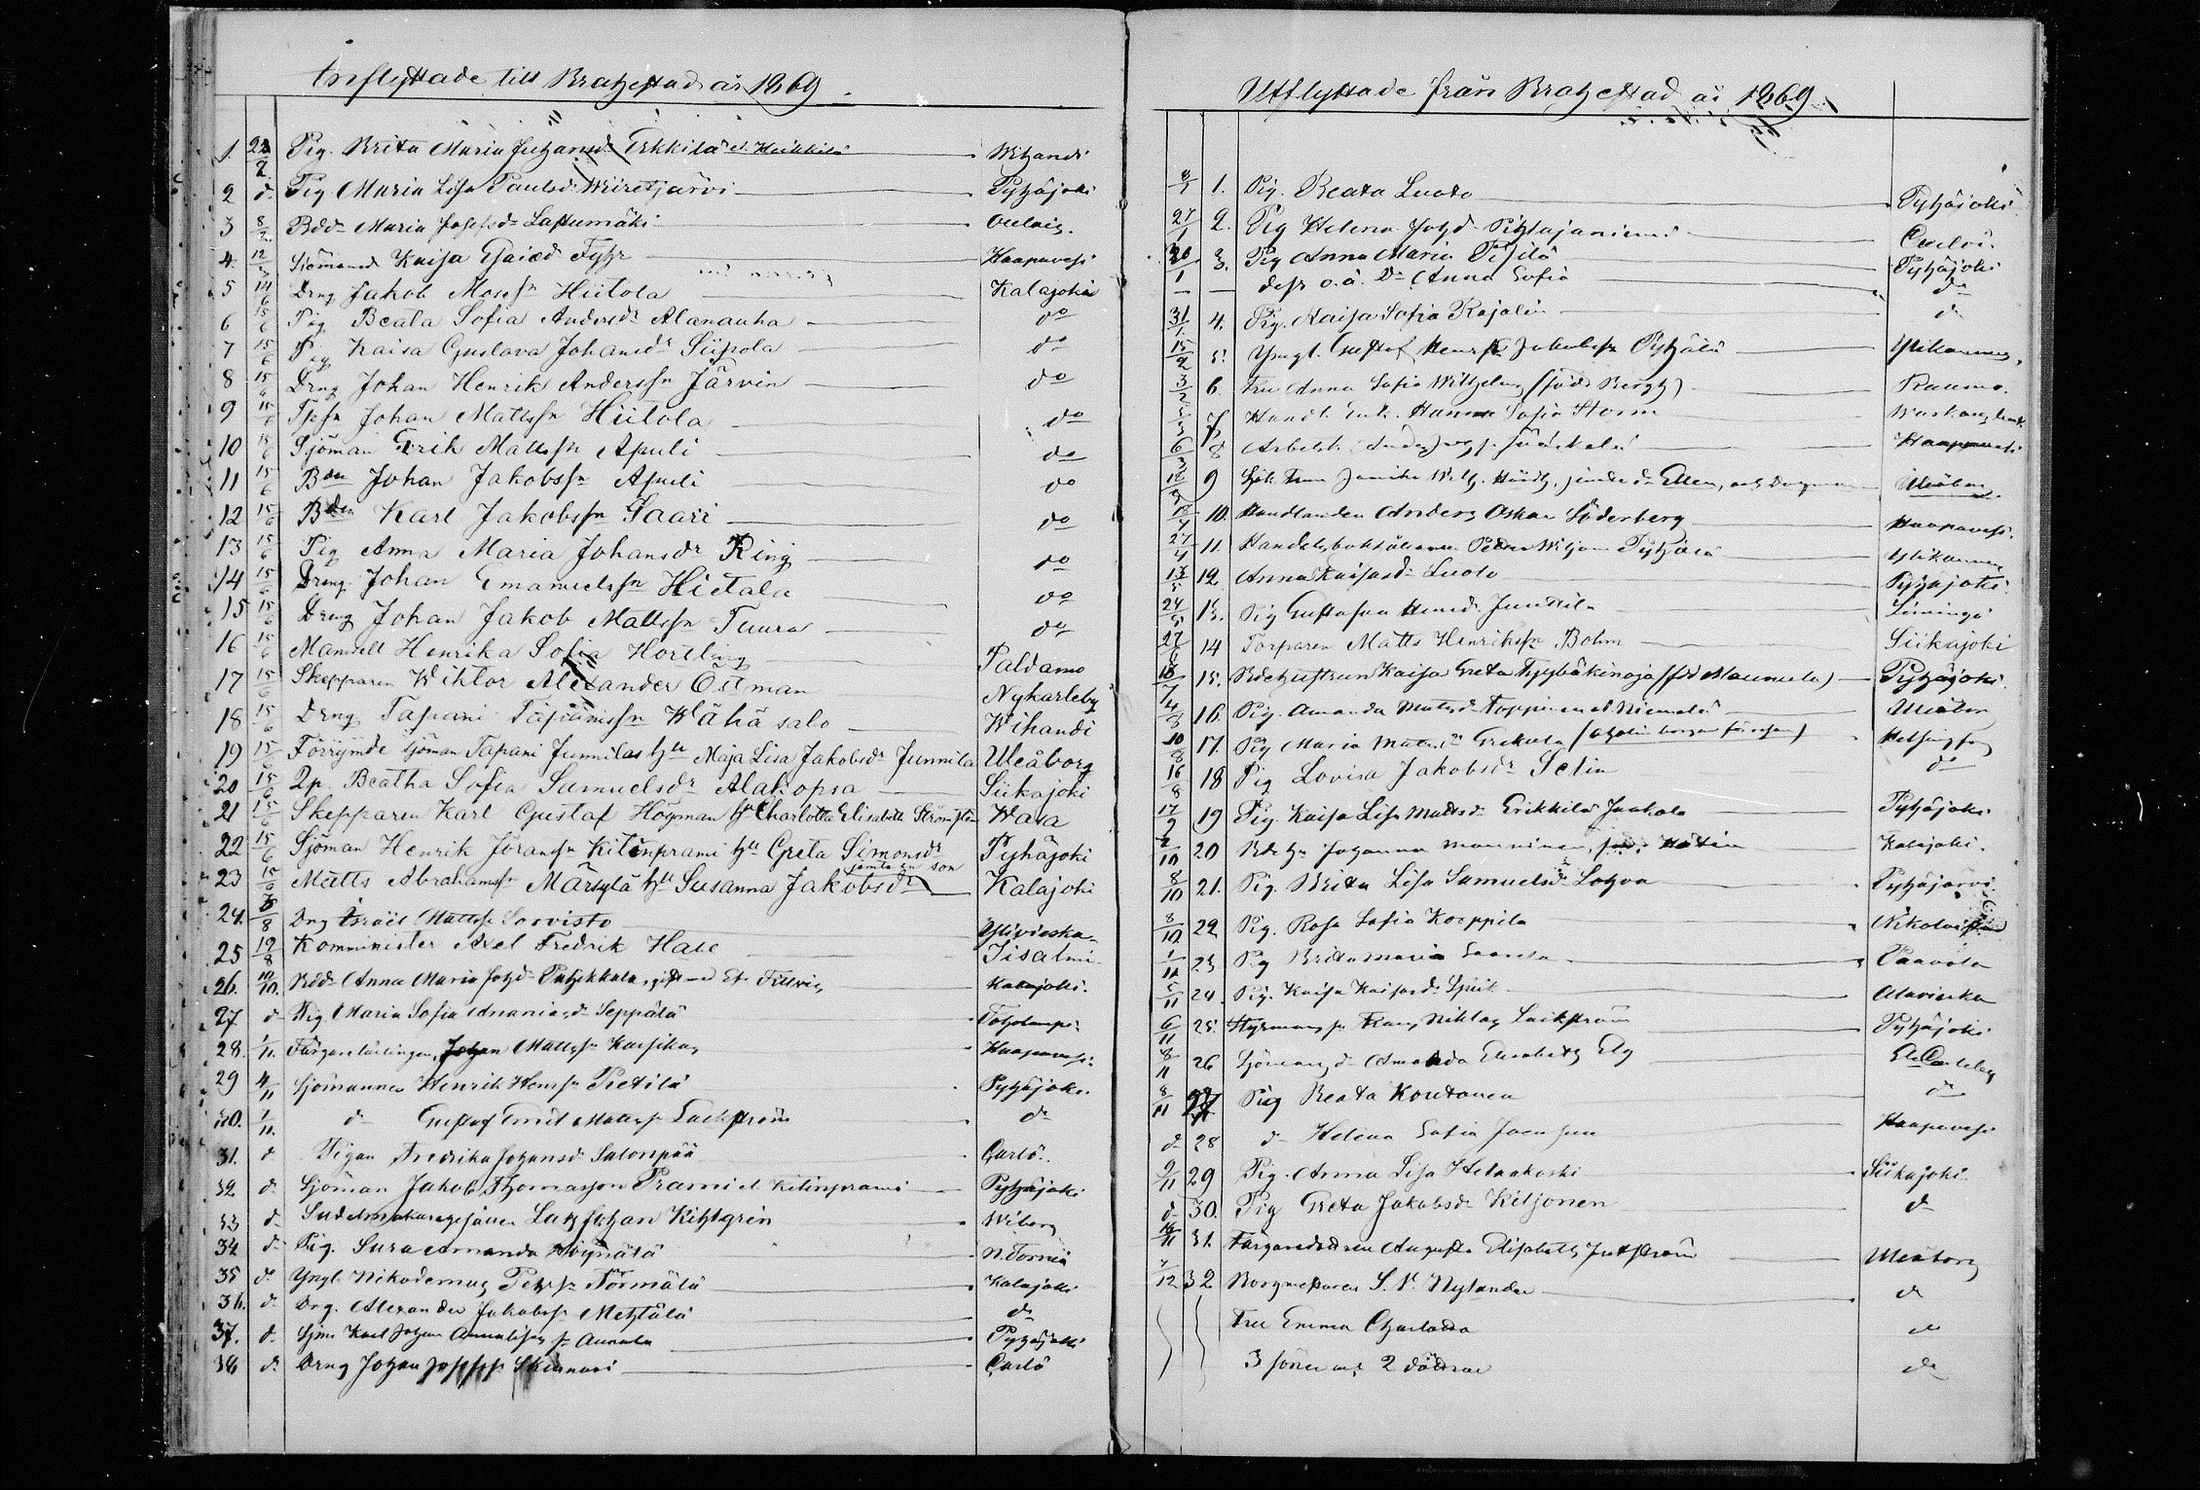 Inflyttade till Brahestad år 1869.
1. 22/2 Pig. Brita Maria Juhansdr Erkkilä el. Heikkilä Wihandi
2 do Pig Maria Lisa Paulsdr Wiiretjärvi Pyhäjoki
3 8/2 Bdd Maria Josefsdr Laftumäki Oulais.
4. 12/3 Sjömansd Kaisa Fyhr Haapavesi
5 14/6 Dreng Jakob Mosesson Hiitola Kalajoki
6 15/6 Pig Beata Sofia Andersdr Alanauha do
7 15/6 Pig Kaisa Gustava Johansdr Siipola do
8 15/6 Dreng Johan Henrik Andersson Järvin do
9 15/6 Johan Mattsson Hiitola do
10 15/6 Sjöman Erik Mattsson Apuli do
11 15/6 Bden Johan Jakobsson Apuli do
12 15/6 Bden Karl Jakobsson Saari do
13 15/6 Pig Anna Maria Johansdr Ring do
14 15/6 Dreng Johan Emanuelsson Hietala do
15 15/6 Dreng Johan Jakob Mattsson Tuura do
16 15/6 Mamsell Henrika Sofia Hortling Paldamo
17 15/6 Skepparen Wiktor Alexander Östman Nykarleby
18 15/6 Dreng Tapani Tapanisson Wähäsalo Wihandi
19 15/6 Förrymde sjöman Tapani Junnilas hu Maja Lisa Jakobsdr Junnila Uleåborg
20 15/6 Qp. Beatha Sofia Samuelsdr Alakopsa Siikajoki
21 15/6 Skepparen Karl Gustaf Högman hu Charlotta Elisabeth Strömsten Wasa
22 15/6 Sjöman Henrik Jöransson Kitinprami hu Greta Simonsdr Pyhäjoki
jemte en son
23 15/6 Matts Abrahamsson Märsylä hu Susanna Jakobsdr Kalajoki
24. Dng Israel Mattsson Sorvisto Ylivieska
25 12/8 Komminister Axel Fredrik Hale Iisalmi
26. 10/10. Bdd. Anna Maria Johdr Kalajoki.
27 do Pig Maria Sofia Ananiasdr Seppälä Toholampi.
28. 1/11. Färgarelärlingen Johan Mattsson Karsikas Haapavesi.
29 4/11 Sjömannen Henrik Henrsson Pietilä Pyhäjoki.
30. 1/11. do Gustaf Emil Mattsson Lackström do
31. do Pigan Fredrika Johansdr Salonpää Carlö.
32 do Sjöman Jakob Thomasson Prami el. Kitinprami Pyhäjoki
33 do Sadelmakaregesällen Johan Kihlgrén Wiborg
34 do Pig. Sara Amanda N. Torniå
35 do Yngl. Nikodemus Pehrsson Törmälä Kalajoki
36. do Drg. Alexander Jakobsson Mehtälä do
37. do Sjm. Karl Johan Annala Pyhäjoki
38 do Dreng Johan Josefsson Carlö
Utflyttade från Brahestad år 1869.
1. Pig. Beata Luoto Pyhäjoki
27/1 2. Pig Helena Johdr Pihlajaniemi Carlö.
30/1 3. Pig Anna Maria Pyhäjoki
dess o.ä. Dr Anna Sofia do
31/1 4. Pig. Kaisa Sofia Rajalin do
15/2 5. Yngl. Gustaf Henrik Jakobsson Pyhälä Ylikannus.
3/2 6. Fru Anna Sofia Wilhelms (född Bergh) Raumo.
7. Handl. enk. Hanna Sofia Storm
6/3 8 Arbetsk. Haapavesi
9 Ellen, Uleåborg.
10. Handlanden Anders Oskar Söderberg Haapavesi.
27/4 11. Handelsbokhållaren Peter Wiljam Pyhälä Ylikannus
13/5 12. Anna Kaisasdr Luoto Pyhäjoki.
24/5 13. Pig Gustafva Henrsdr Junttila Limingo
27/6 14 Torparen Matts Henriksson Bohm Siikajoki
15. Kaisa Greta (född Maunula) Pyhäjoki.
16. Pig. Amanda Matsdr Toppinen el Niemelä Uleåborg
17. Pig Maria Helsingfors
16/8 18 Pig Lovisa Jakobsdr Selin do
17/9 19 Pig. Kaisa Lisa Mattsdr Erikkilä Jaakola Pyhäjoki
20 Johanna Manninen, Kalajoki.
8/10 21. Pig. Brita Lisa Samuelsdr Lohva Pyhäjärvi.
8/10 22 Pig. Rosa Sofia Korppila Nikolaistad
1/11 23 Pig Brita Maria Paavola
5/11 24. Pig. Kaisa Kaisasdr Alavieska
6/11 25. Styrmans sn Frans Niklas Lackström Pyhäjoki
8/11 26 Sjömans dr Amanda Elisabeth Elg
8/11 27 Pig Beata Koutonen do
do 28 do Helena Sofia Haapavesi
9/11 29 Pig. Anna Lisa Helaakoski Siikajoki.
do 30. Pig Greta Jakobsdr Kiljonen do
31. Färgaredottren Augusta Elisabeth Uleåborg
32 Borgmästaren Nylander do
Fru Emma Charlotta do
3 söner och 2 döttrar do